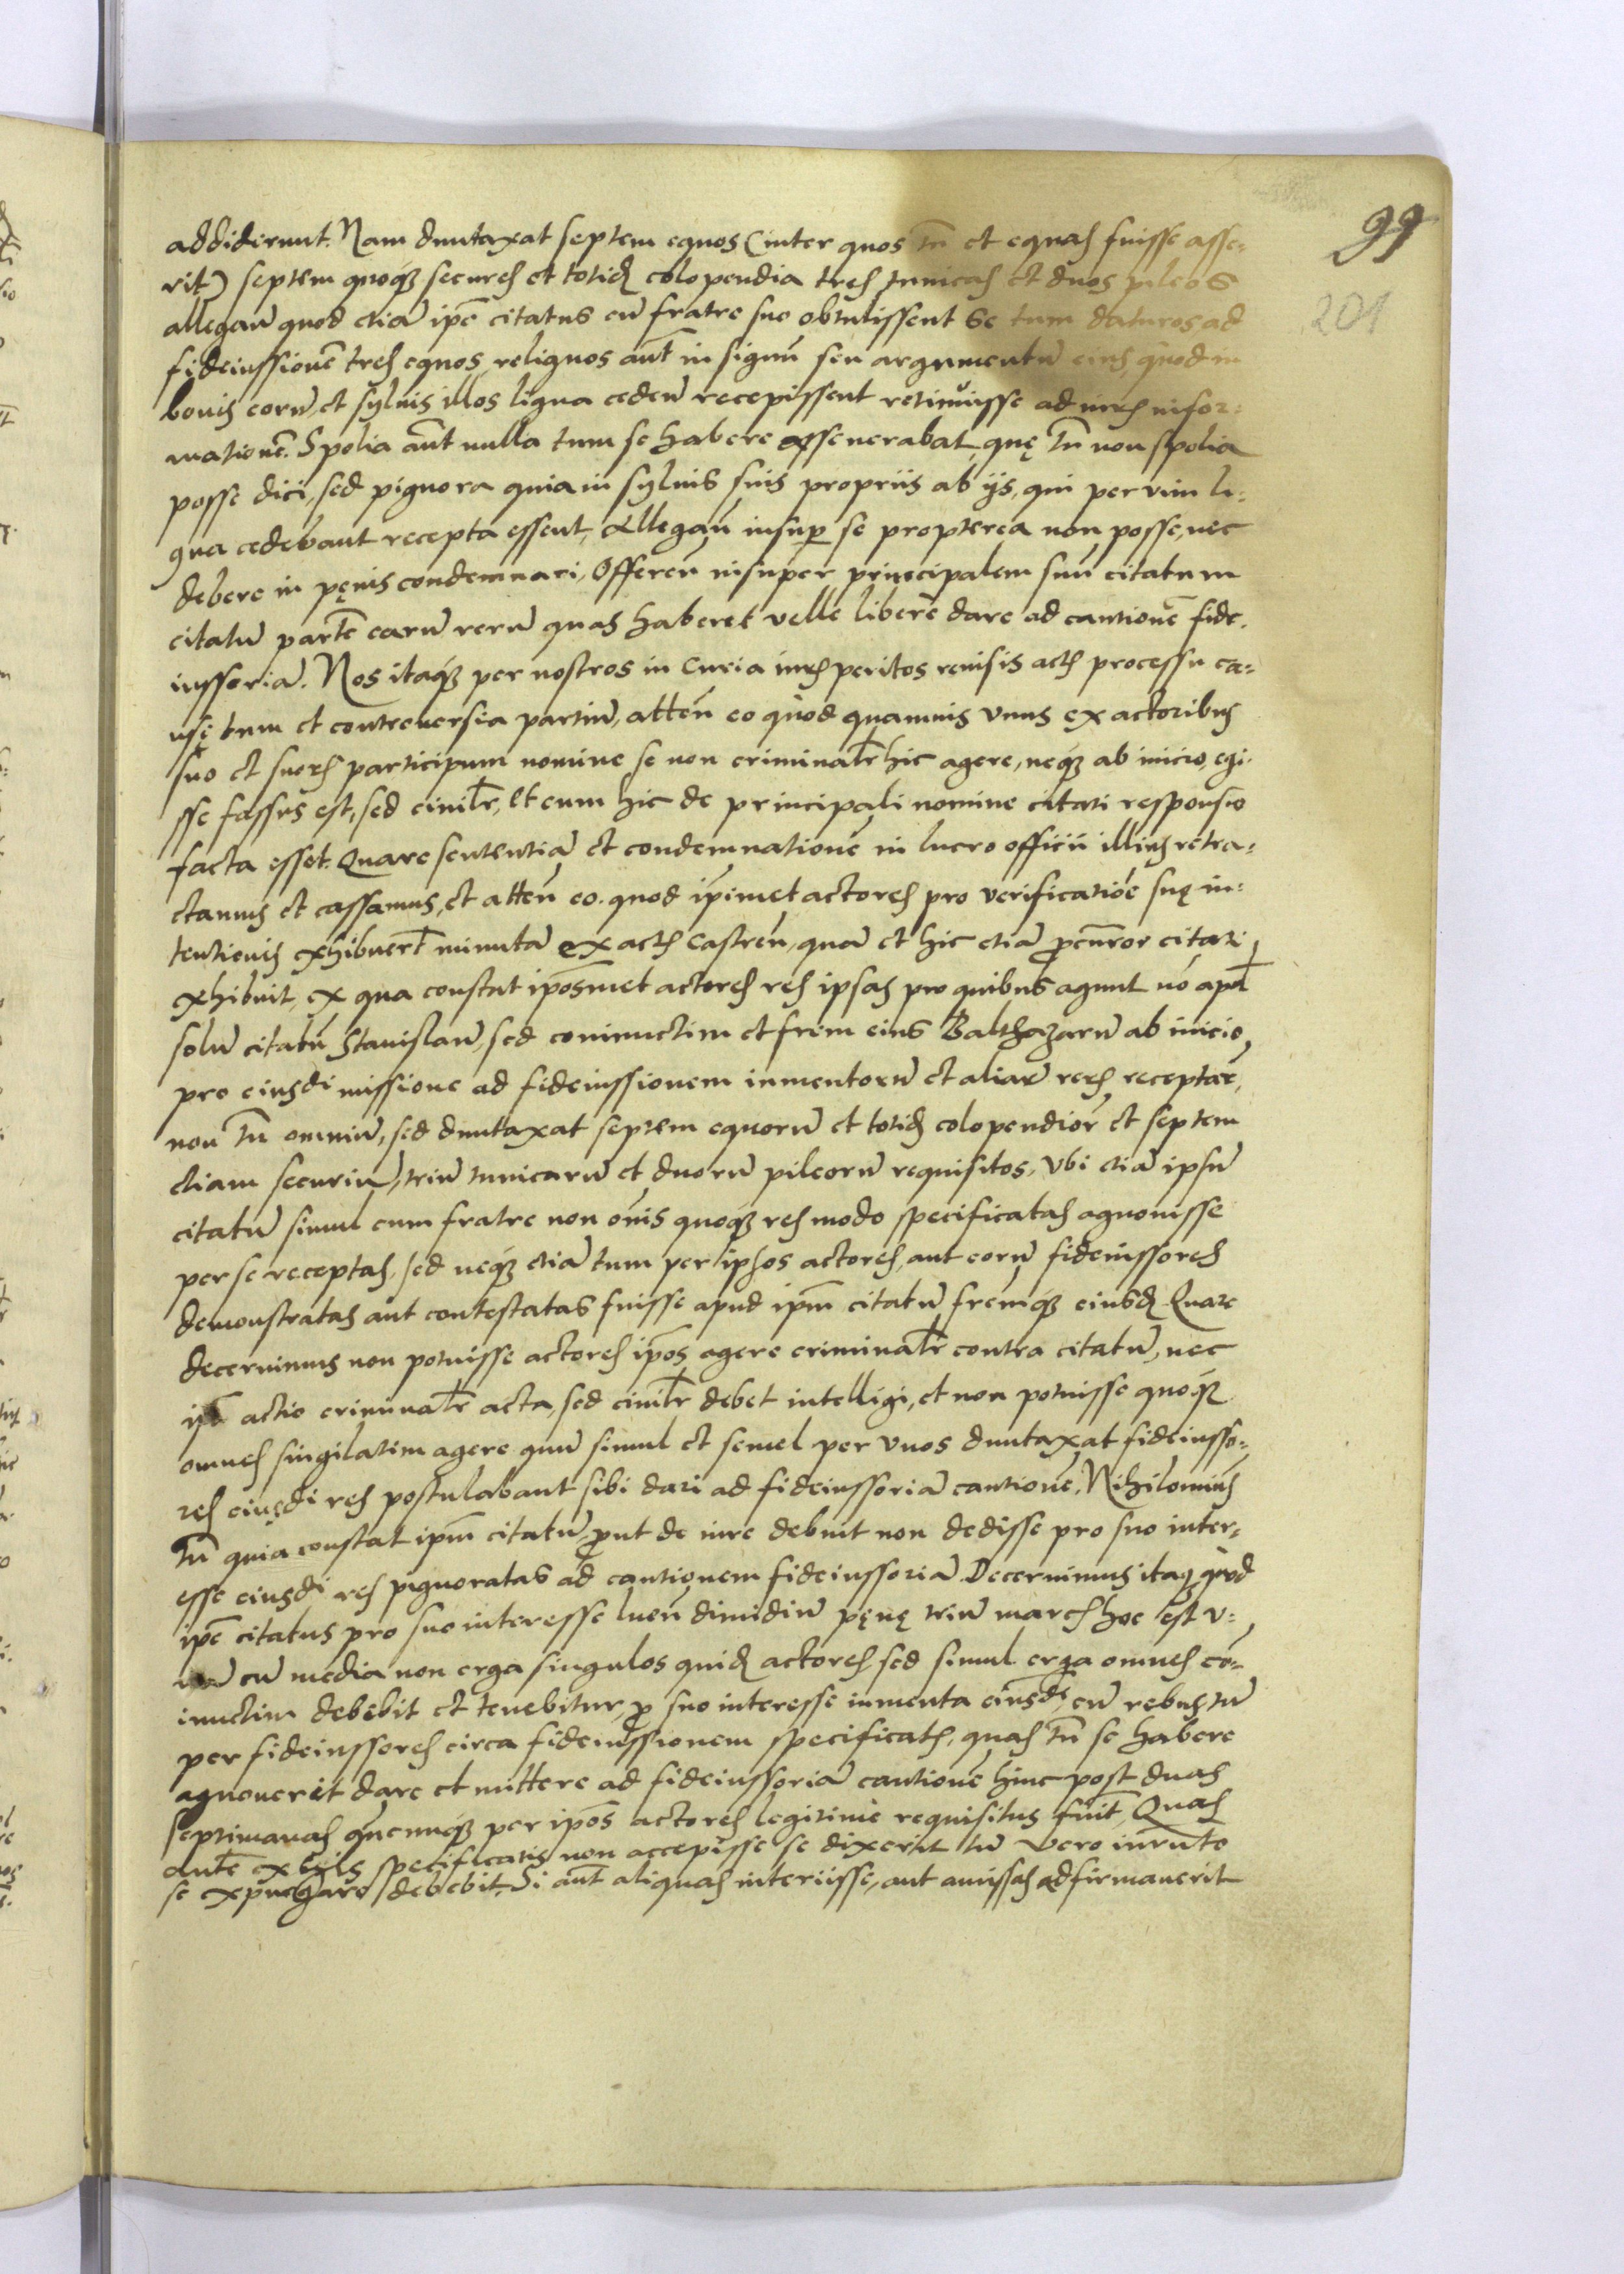 99
201
addiderunt. Nam duntaxat septem equos (inter quos tn̄ et equas fuisse asse-
rit) septem quoq; secures et totid̄ colopendia tres tunicas et duos pileos
allegan̄ quod etiā ipē citatus cū fratre suo obtulissent se tum daturos ad
fideiussionē tres equos, reliquos aūt in signū seu argumentū eius, quod in
bonis eorū, et syluis illos ligna cedeñ recepissent retinuisse ad iuris infor-
mationē. Spolia aūt nulla tum se habere asseuerabat, quę tn̄ non spolia
posse dici, sed pignora quia in syluis suis propriis ab ijs, qui per vim li-
gna cedebant recepta essent, Allegan̄ insup se propterea non posse, nec
debere in pęnis condemnari, Offeren̄ insuper principalem suū citatum
citatū partē earū rerū quas haberet velle liberè dare ad cautionē fide-
iussoriā. Nos itaq; per nostros in Curia iuris peritos reuisis actis processu ca-
usę tum et controuersia partiū, atten̄ eo quòd quamuis vnus ex actoribus
suo et suorū participum nomine se non criminalr̄ hic agere, neq; ab inicio egi-
sse fassus est, sed ciuilr̄, Et cum hic de principali nomine citati responsio
facta esset. Quare sententiā et condemnationē in lucro officii illius retra-
ctamus et cassamus, et atten̄ eo. quod ip̄imet actores pro verificatiōe suę in-
tentionis exhibuert̄ minutā ex actis Castren̄, quā et hic etiā p̄curor citati
exhibuit, ex qua constat ip̄osmet actores res ipsas pro quibus agunt nō apd̄
solū citatū Stanislaū, sed coniunctim et fr̄em eius Balthazarū ab inicio,
pro eiusdi missione ad fideiussionem iumentorū et aliarū rerū receptar̄,
non tn̄ omniū, sed duntaxat septem equorū et totid̄ colopendior̄ et septem
etiam securiū, triū tunicarū et duorū pileorū requisitos, Vbi etiā ipsū
citatū simul cum fratre non om̄is quoq; res modo specificatas agnouisse
per se receptas, sed neq; etiā tum per ipsos actores, aut eorū fideiussores
demonstratas aut contestatas fuisse apud ip̄m citatū fr̄emq; eiusd̄. Quare
decernimus non potuisse actores ip̄os agere criminalr̄ contra citatū, nec
ip̄ā actio criminalr̄ acta, sed ciuilr̄ debet intelligi, et non potuisse quoq;
omnes singilatim agere quū simul et semel per vnos duntaxat fideiusso-
res eiusdi res postulabant sibi dari ad fideiussoriā cautionē. Nihilominus
tn̄ quia constat ip̄m citatū p̄ut de iure debuit non dedisse pro suo inter-
esse eiusdi res pignoratas ad cautionem fideiussoriā. Decernimus itaq; quòd
ipē citatus pro suo interesse luen̄ dimidiū pęnę triū marcis hoc est v-
nā cū media non erga singulos quid̄ actores, sed simul erga omnes co-
iunctim debebit et tenebitur, p̄ suo interesse iumenta eiusdi, cū rebus tū
per fideiussores circa fideiussionem specificatis, quas tn̄ se habere
agnouerit dare et mittere ad fideiussoriā cautionē hinc post duas
septimanas quenuq; per ip̄os actores legitimè requisitus fuit̄, Quas
autē ex illis specificatis non accepisse se dixerit tū vero iurn̄to
se expurgare debebit. Si aūt aliquas interiisse, aut amissas adfirmauerit